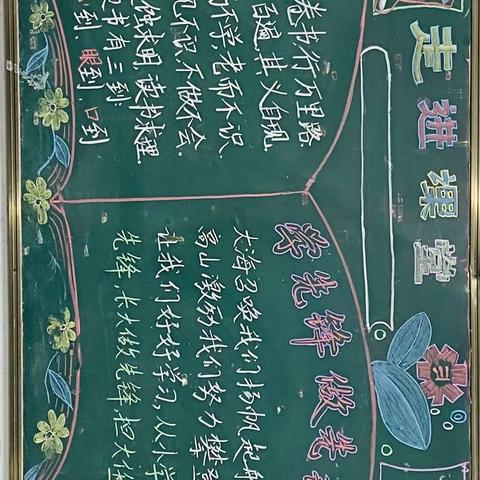 走进课堂
卷书行万里路
百遍,其义自见
不学,老而不识
见不识,不做不会。
烛求明,读书求理
书有三到
到 眼到,口到
学先锋 做先
大海召唤我们扬帆起航
高山激励我们努力攀登
让我们好好学习,从小学
先锋,长大做先锋 担大任